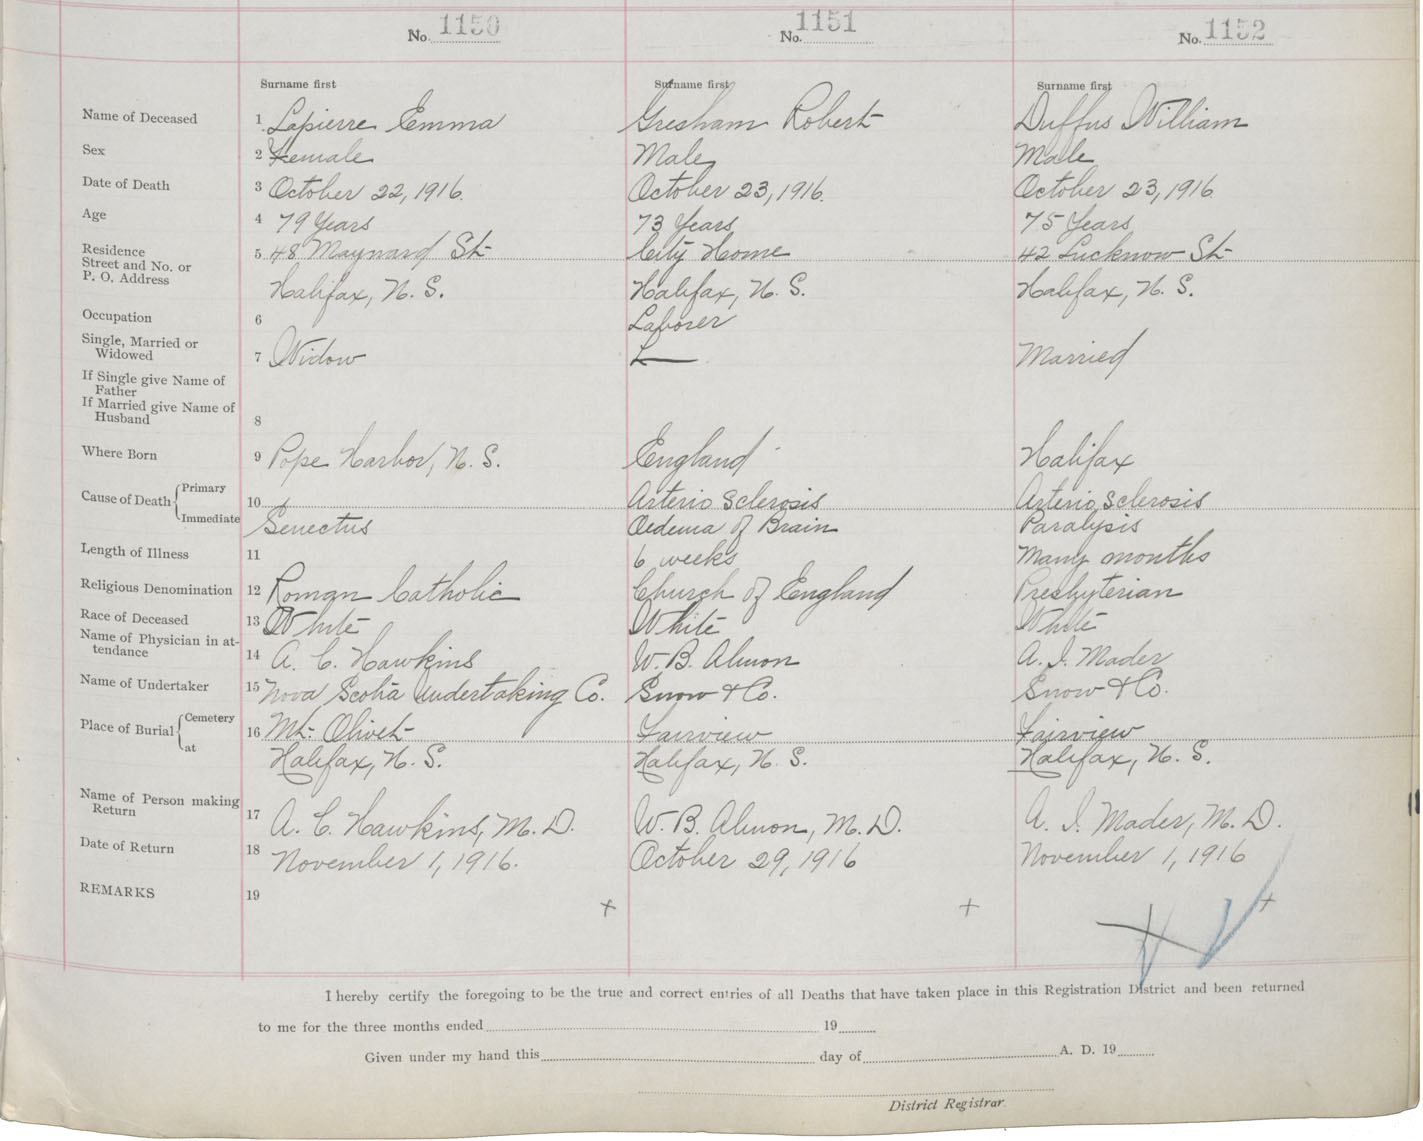 No. 1150 No. 1151 No. 1152
Surname first Surname first Surname first
Name of Deceased 1 Lapierre Emma Gresham Robert Duffus William
Sex 2 Female Male Male
Date of Death 3 October 22, 1916. October 23, 1916. October 23, 1916
Age 4 79 Years 73 Years 75 Years
Residence 5 48 Maynard St City Home 42 Lucknow St
Street and No. or
P. O. Address Halifax, N. S. Halifax, N. S. Halifax, N. S.
Occupation 6 Laborer
Single, Married or
Widowed 7 Widow Married
If Single give Name of
Father
If Married give Name of
Husband 8
Where Born 9 Pope Harbor, N. S. England Halifax
Cause of Death Primary 10 Arterio Sclerosis Arterio Sclerosis
Immediate Senectus Oedema of Brain Paralysis
Length of Illness 11 6 weeks Many months
Religious Denomination 12 Roman Catholic Church of England Presbyterian
Race of Deceased 13 White White White
Name of Physician in at-
tendance 14 A. C. Hawkins W. B. Almon A. I. Mader
Name of Undertaker 15 Nova Scotia Undertaking Co. Snow & Co. Snow & Co.
Place of Burial Cemetery 16 Mt. Olivet Fairview Fairview
at Halifax, N. S. Halifax, N. S. Halifax, N. S.
Name of Person making
Return 17 A. C. Hawkins, M. D. W. B. Almon, M. D. A. I. Mader, M. D.
Date of Return 18 November 1, 1916. October 29, 1916 November 1, 1916
REMARKS 19
I hereby certify the foregoing to be the true and correct entries of all Deaths that have taken place in this Registration District and been returned
to me for the three months ended 19
Given under my hand this day of A. D. 19
District Registrar.